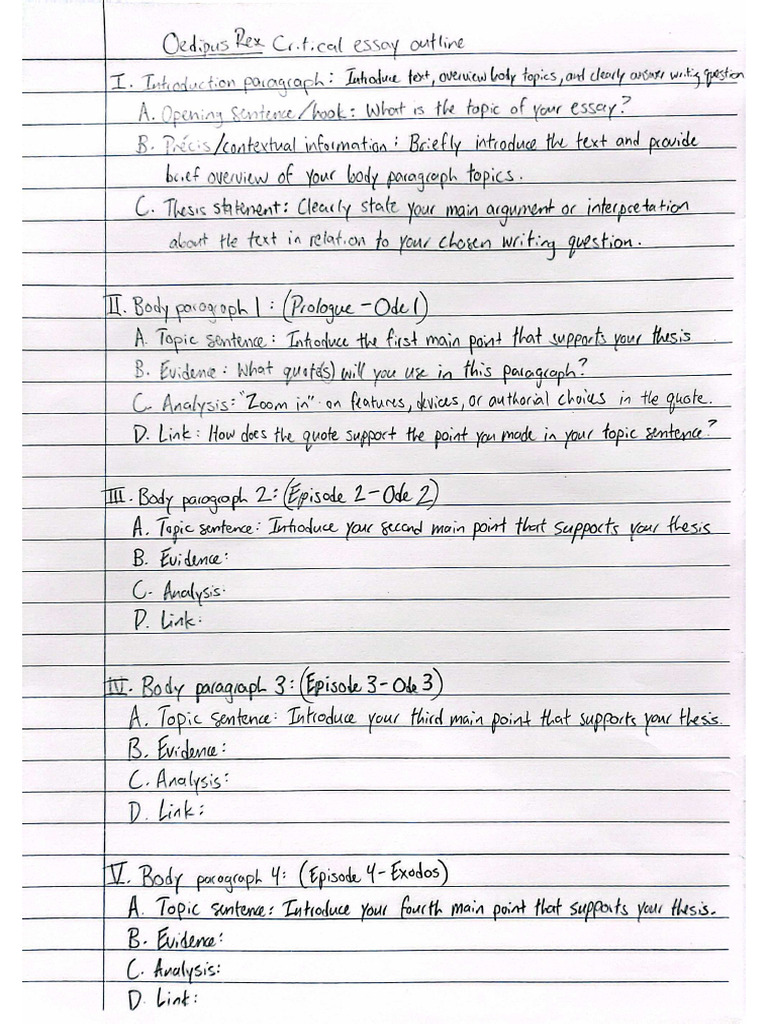 Oedipus Rex Critical essay outline
I. Introduction paragraph: Introduce text, overview body topics, and clearly answer writing question
A. Opening sentence/hook: What is the topic of your essay?
B. Précis/contextual information: Briefly introduce the text and provide
brief overview of your body paragraph topics.
C. Thesis statement: Clearly state your main argument or interpretation
about the text in relation to your chosen writing question.
II. Body paragraph 1: (Prologue - Ode 1)
A. Topic sentence: Introduce the first main point that supports your thesis
B. Evidence: What quote(s) will you use in this paragraph?
C. Analysis: "Zoom in" on features, devices, or authorial choices in the quote.
D. Link: How does the quote support the point you made in your topic sentence?
III. Body paragraph 2: (Episode 2 - Ode 2)
A. Topic sentence: Introduce your second main point that supports your thesis
B. Evidence:
C. Analysis:
D. Link:
IV. Body paragraph 3: (Episode 3 - Ode 3)
A. Topic sentence: Introduce your third main point that supports your thesis.
B. Evidence:
C. Analysis:
D. Link:
V. Body paragraph 4: (Episode 4 - Exodos)
A. Topic sentence: Introduce your fourth main point that supports your thesis.
B. Evidence:
C. Analysis:
D. Link: